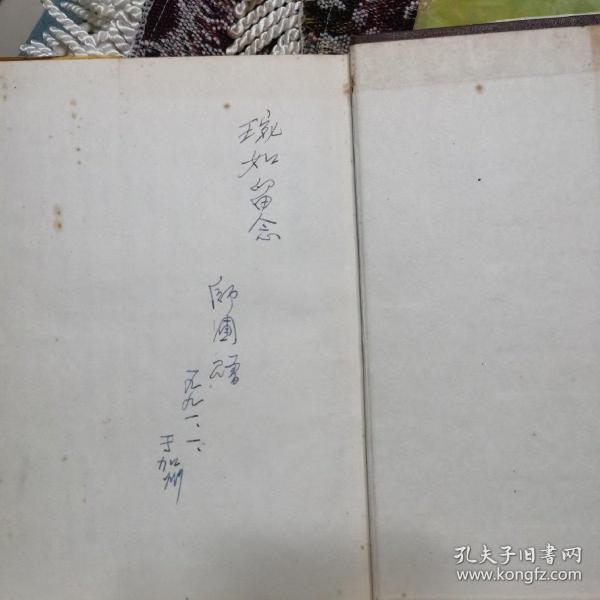 琬如留念
师圃赠
一九九一、一、
于加州
孔夫子旧書网
www.kongfz.com